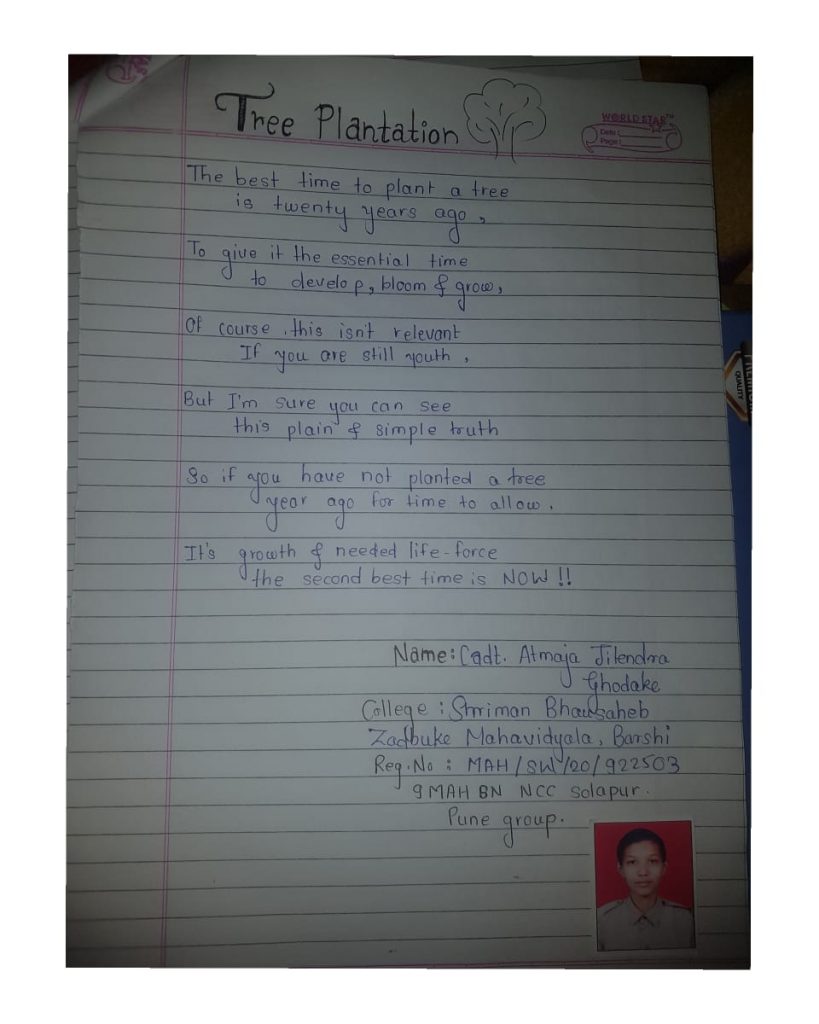 Tree Plantation
WORLD STAR™
Date :
Page :
The best time to plant a tree
is twenty years ago,
To give it the essential time
to develop, bloom & grow,
Of course, this isn't relevant
If you are still youth,
But I'm sure you can see
this plain & simple truth
So if you have not planted a tree
year ago for time to allow.
It's growth & needed life-force
the second best time is NOW !!
Name: Cadt. Atmaja Jitendra
Ghodake
College : Shriman Bhausaheb
Zadbuke Mahavidyala, Barshi
Reg.No : MAH/SW/20/922503
9 MAH BN NCC Solapur.
Pune group.
QUALITY